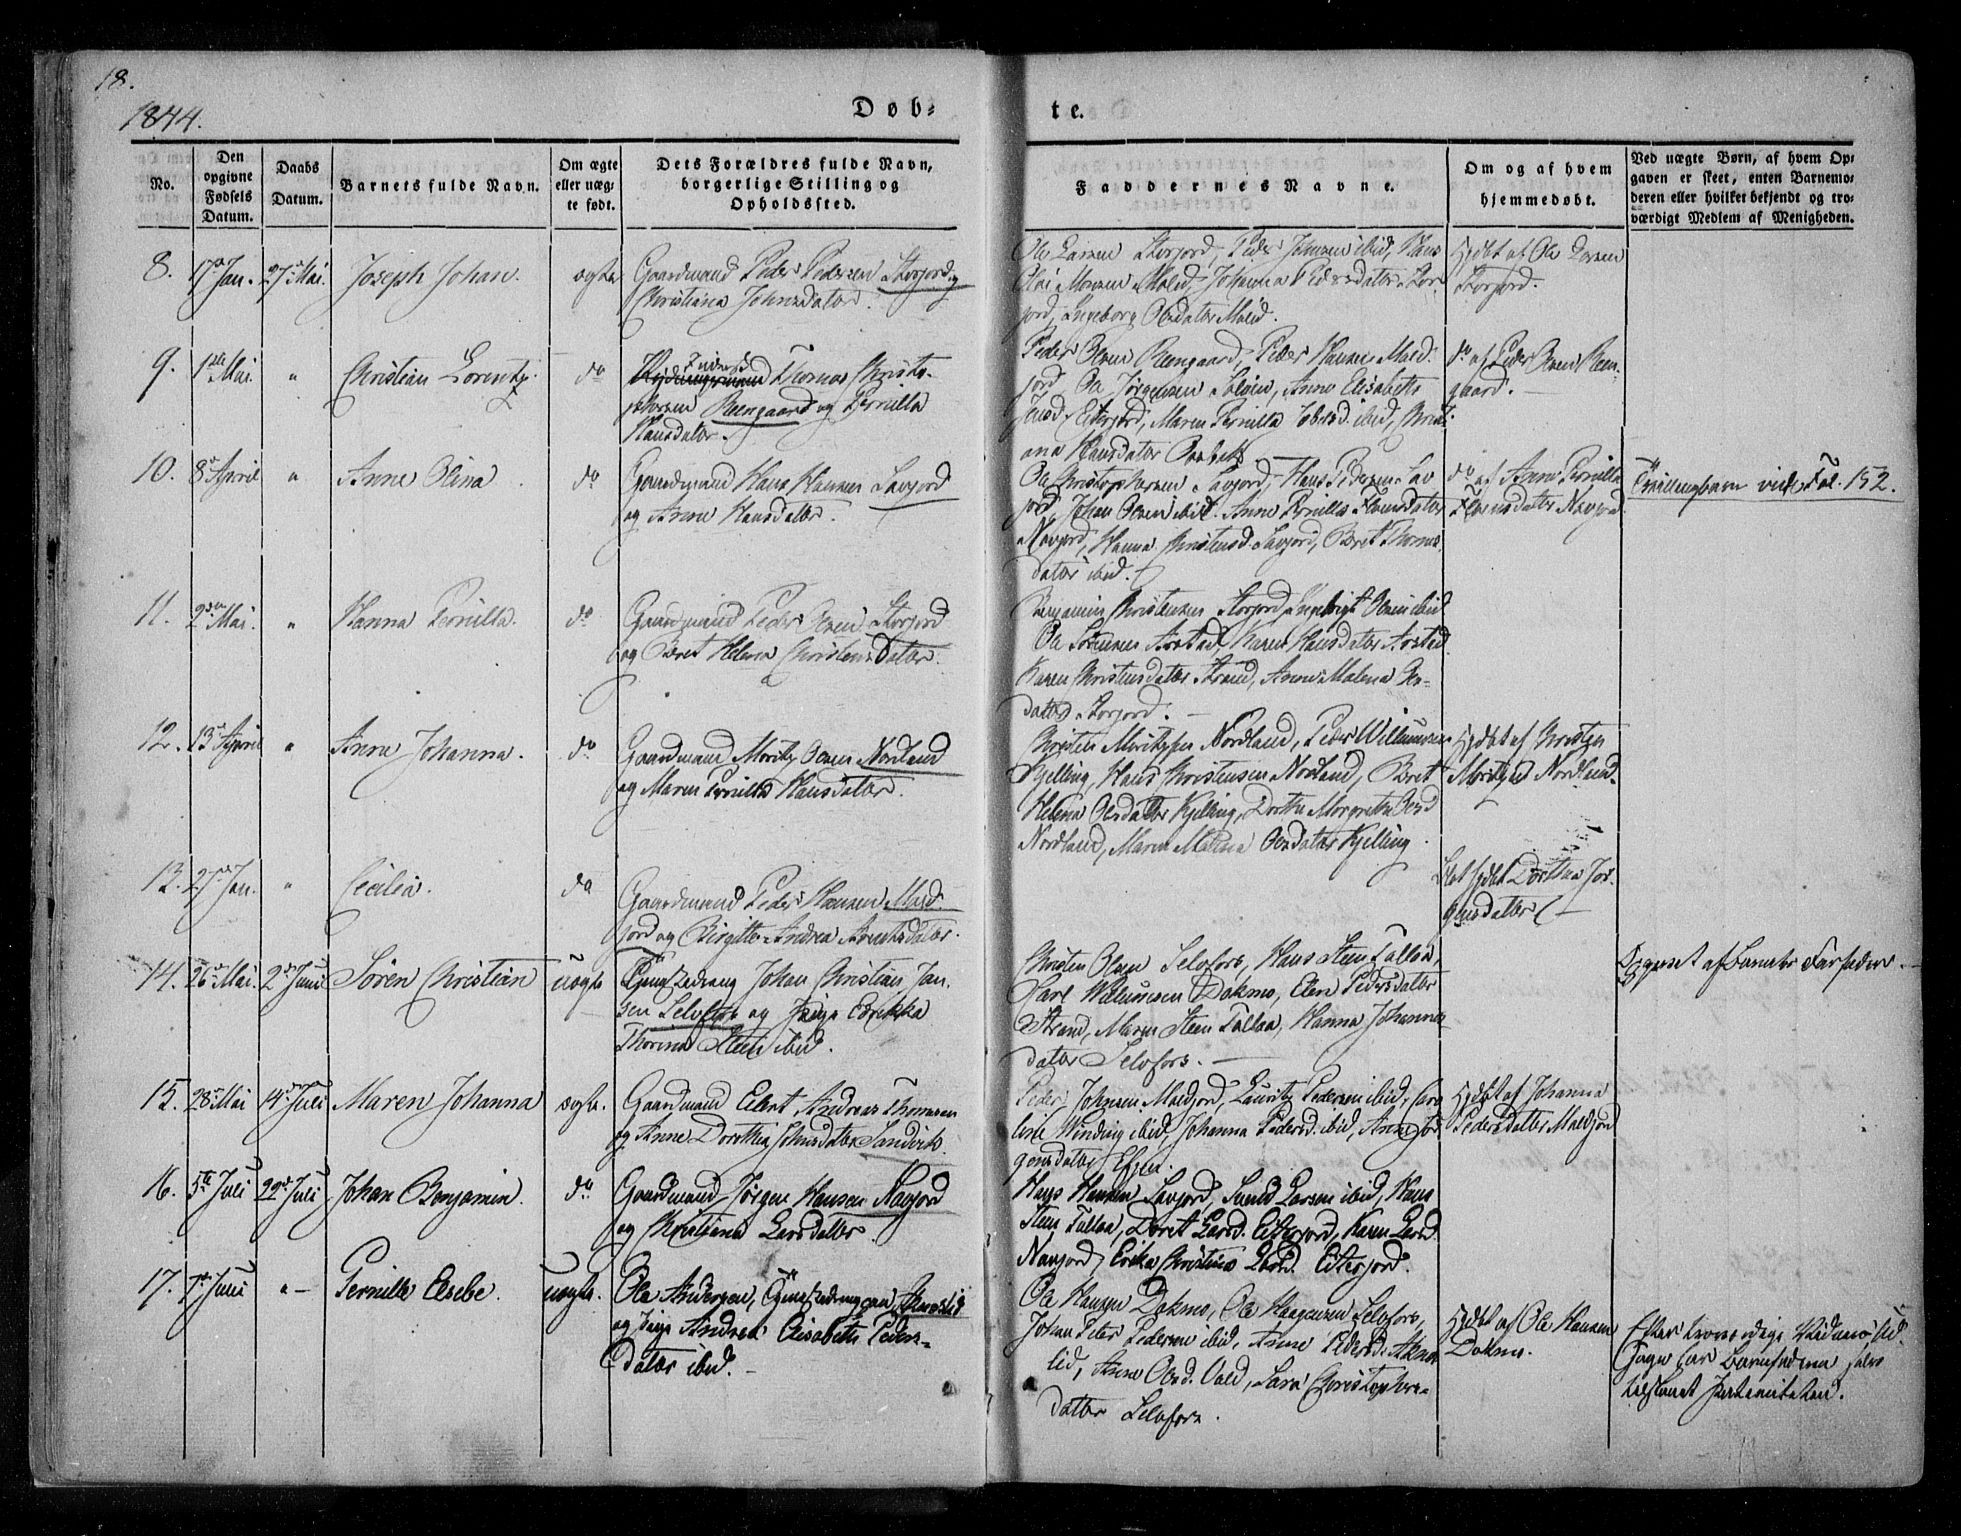 18.
1844.
Døb-
te.
No.
Den opgivne Fødsels Datum.
Daabs Datum.
Barnets fulde Navn.
Om ægte eller uæg- te født.
Dets Forældres fulde Navn, borgerlige Stilling og Opholdssted.
Faddernes Navne.
Om og af hvem hjemmedøbt.
Ved uægte Børn, af hvem Op-
gaven er skeet, enten Barnemo-
deren eller hvilket bekjendt og tro-
værdigt Medlem af Menigheden.
8. 17 Jan. 27 Mai. Joseph Johan. ægte Gaardmand Peder Pedersen Storjord og
Christiana Johnsdatter.
Ole Larsen Storjord, Peder Johnsen ibid, Hans
Olai Monsen Molid, Johanna Pedersdatter Stor-
jord, Ingeborg Olsdatter Molid.
Hjdbt af Ole Larsen
Storjord.
9. 1ste Mai. " Christian Lorentz. do Thomas Christo-
phersen Reengaard og Pernilla
Hansdatter.
Peder Olsen Reengaard, Peder Hansen Mald-
jord, Ole Jørgensen, Anne Elisabeth
Jensd. Eiterjord, Maren Pernilla ibid, Christi-
ana Hansdatter
do af Peder Olsen Reen-
gaard.
10. 8 April " Anne Olina. do Gaardmand Hans Hansen Savjord
og Anne Hansdatter.
Ole Christophersen Savjord, Hans Pedersen Sav-
jord, Johan Olsen ibid. Anne Pernilla
Navjord, Hanna Christensd. Savjord, Beret Thomas-
datter ibid.
do af Anne Pernilla
Navjord.
Tvillingbarn vide Fol. 152.
11. 2den Mai. " Hanna Pernilla. do Gaardmand Peder Olsen Storjord
og Beret Helena Christensdatter.
Benjamin Christensen Storjord, Ingebrigt Olsen ibid
Ole Sørensen Arstad, Karen Hansdatter Arstad
Karen Christensdatter Strand, Anne Malena Ols-
datter Storjord.
12. 13 April " Anne Johanna. do Gaardmand Moritz Olsen Nordland
og Maren Pernilla Hansdatter.
Christen Moritzsen Nordland, Peder Willumsen
Kjelling, Hans Christensen Nordland, Beret
Helena Olsdatter Kjelling, Dorthea Margretha Olsd
Nordland, Maren Malena Olsdatter Kjelling.
Hjdbt af Christen
Moritzen Nordland.
13. 27 Jan. " Cecilia. do Gaardmand Peder Hansen Mald-
jord og Birgitte Andrea Arentsdatter.
hjdbt Dorthea Jør-
gensdatter
14. 26 Mai. 2d Juni Søren Christian uægte Johan Christian Jan-
sen Selofors og Pige Edrikka
Thorina Steen ibid.
Christen Olsen Selofors, Hans Steen Tollaa,
Carl Willumsen Dokmo, Elen Pedersdatter
Strand, Maren Steen Tollaa, Hanna Johannes-
datter Selofors.
Opgivet af Barnets Farfader.
15. 28 Mai 14d Juli Maren Johanna ægte. Gaardmand Elert Andreas Thomsen
og Anne Dorothea Johnsdatter Sandvik.
Peder Johnsen Maldjord, Lauritz Pedersen ibid, Caro-
line Winding ibid, Johanna Pedersd. ibid, Anne Jør-
gensdatter
Hjdbt af Johanna
Pedersdatter Maldjord
16. 5te Juli 22d Juli Johan Benjamin. do Gaardmand Jørgen Hansen Navjord
og Christiana Larsdatter
Hans Hansen Savjord, Svend Larsen ibid, Hans
Steen Tollaa, Beret Larsd. Eiterjord, Karen Larsd.
Navjord, Erika Christina Larsd. Eiterjord.
17. 7de Juni " Pernille Elsebe. uægte. Ole Andersen,
og Pige Andrea Elisabeth Peders-
datter ibid.
Ole Hansen Dokmo, Ole Haagensen Selofors,
Johan Peter Pedersen ibid, Anne Pedersd.
lid, Anne Olsd. Vold, Sara Christophers-
datter Selofors.
Hjdbt af Ole Hansen
Dokmo.
Efter troværdige
har Barnefaderen selv
tilstaaet Paterniteten.